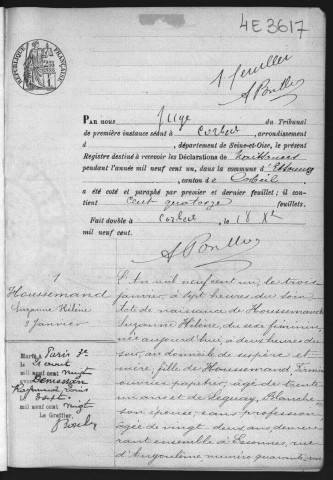 4E3617
1er feuillet
RÉPUBLIQUE FRANÇAISE
PAR nous Juge du Tribunal
de première instance séant à Corbeil, arrondissement
d , département de Seine-et-Oise, le présent
Registre destiné à recevoir les Déclarations de Naissances
pendant l'année mil neuf cent un, dans la commune d'Essonnes
, canton de Corbeil
a été coté et paraphé par premier et dernier feuillet; il con-
tient Cent quatorze feuillets.
Fait double à Corbeil le 18 Xbre
mil neuf cent.
1
Houssemand
Suzanne Hélène
3 Janvier
Marié à Paris 3e
le
mil neuf cent vingt
Raymond
mil neuf cent vingt
Le Greffier,
L'An mil neuf cent un, le trois
janvier, à sept heures du soir
acte de naissance de Houssemand
Suzanne Hélène, du sexe féminin,
née aujourd'hui, à deux heures du
soir, au domicile de ses père et
mère, fille de Houssemand, Firmin
ouvrier papetier, âgé de trente
un ans et de Blanche
son épouse, sans profession
âgée de vingt deux ans, demeu-
rant ensemble à Essonnes, rue
d'Angoulême numéro quarante